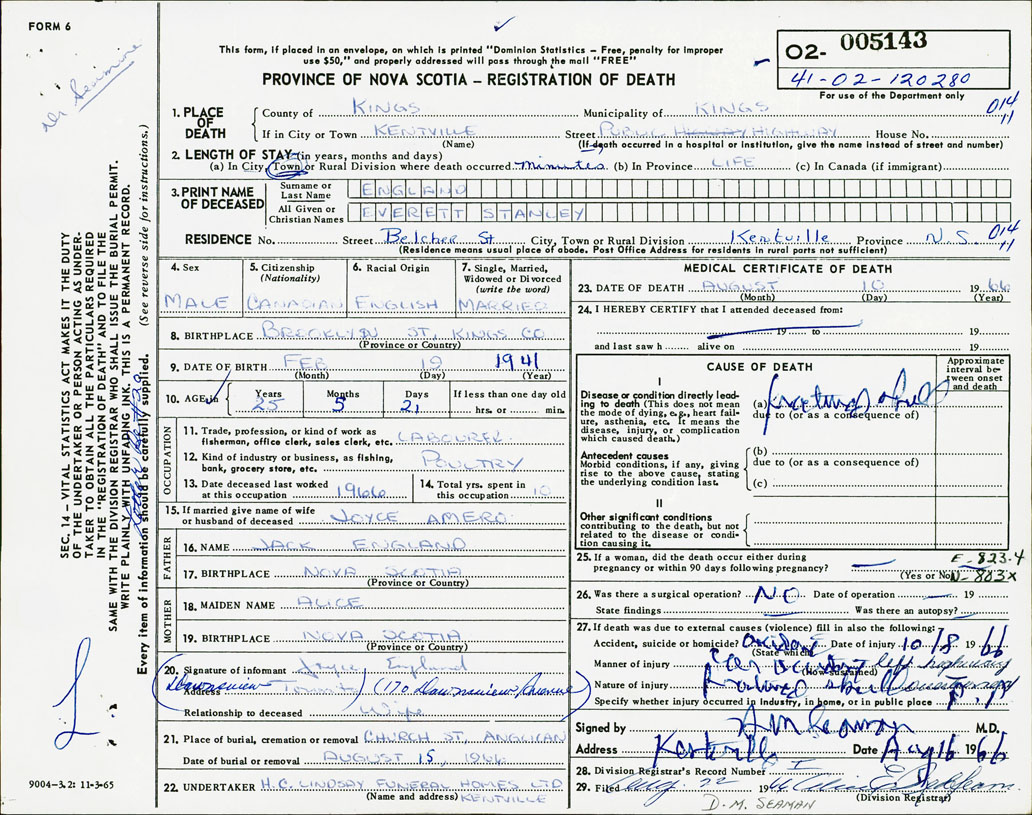 FORM 6
This form, if placed in an envelope, on which is printed "Dominion Statistics – Free, penalty for improper
use $50," and properly addressed will pass through the mail "FREE"
PROVINCE OF NOVA SCOTIA – REGISTRATION OF DEATH
02- 005143
41-02-120280
For use of the Department only
Dr Seaman
SEC. 14 – VITAL STATISTICS ACT MAKES IT THE DUTY
OF THE UNDERTAKER OR PERSON ACTING AS UNDER-
TAKER TO OBTAIN ALL THE PARTICULARS REQUIRED
IN THE "REGISTRATION OF DEATH" AND TO FILE THE
SAME WITH THE DIVISION REGISTRAR WHO SHALL ISSUE THE BURIAL PERMIT.
WRITE PLAINLY WITH UNFADING INK. THIS IS A PERMANENT RECORD.
Every item of information should be carefully supplied. (See reverse side for instructions.)
1. PLACE OF DEATH
County of KINGS Municipality of KINGS 014 11
If in City or Town KENTVILLE Street PUBLIC HIGHWAY House No.
(Name) (If death occurred in a hospital or institution, give the name instead of street and number)
2. LENGTH OF STAY (in years, months and days)
(a) In City, Town or Rural Division where death occurred minutes (b) In Province LIFE (c) In Canada (if immigrant)
3. PRINT NAME OF DECEASED
Surname or Last Name ENGLAND
All Given or Christian Names EVERETT STANLEY
RESIDENCE No. Street Belcher St City, Town or Rural Division Kentville Province N.S. 014 11
(Residence means usual place of abode. Post Office Address for residents in rural parts not sufficient)
4. Sex MALE
5. Citizenship (Nationality) CANADIAN
6. Racial Origin ENGLISH
7. Single, Married, Widowed or Divorced (write the word) MARRIED
8. BIRTHPLACE BROOKLYN ST, KINGS CO
(Province or Country)
9. DATE OF BIRTH FEB 19 1941
(Month) (Day) (Year)
10. AGE Years 25 Months 5 Days 21 If less than one day old hrs. or min.
OCCUPATION
11. Trade, profession, or kind of work as fisherman, office clerk, sales clerk, etc. LABOURER
12. Kind of industry or business, as fishing, bank, grocery store, etc. POULTRY
13. Date deceased last worked at this occupation 1966
14. Total yrs. spent in this occupation 10
15. If married give name of wife or husband of deceased JOYCE AMERO
FATHER
16. NAME JACK ENGLAND
17. BIRTHPLACE NOVA SCOTIA
(Province or Country)
MOTHER
18. MAIDEN NAME ALICE
19. BIRTHPLACE NOVA SCOTIA
(Province or Country)
20. Signature of informant Joyce England
Address (170 Downsview Avenue)
Relationship to deceased Wife
21. Place of burial, cremation or removal CHURCH ST, ANGLICAN
Date of burial or removal AUGUST 15, 1966
22. UNDERTAKER H.C. LINDSAY FUNERAL HOMES LTD
(Name and address) KENTVILLE
9004–3.2: 11-3-65
MEDICAL CERTIFICATE OF DEATH
23. DATE OF DEATH AUGUST 10 1966
(Month) (Day) (Year)
24. I HEREBY CERTIFY that I attended deceased from:
19 to 19
and last saw h alive on 19
CAUSE OF DEATH
Approximate interval between onset and death
I
Disease or condition directly leading to death (This does not mean the mode of dying, e.g., heart failure, asthenia, etc. It means the disease, injury, or complication which caused death.)
(a) fractured skull
due to (or as a consequence of)
Antecedent causes
Morbid conditions, if any, giving rise to the above cause, stating the underlying condition last.
(b)
due to (or as a consequence of)
(c)
II
Other significant conditions
contributing to the death, but not related to the disease or condition causing it.
25. If a woman, did the death occur either during
pregnancy or within 90 days following pregnancy?
(Yes or No)
E-823.4
N-803X
26. Was there a surgical operation? NO Date of operation 19
State findings Was there an autopsy?
27. If death was due to external causes (violence) fill in also the following:
Accident, suicide or homicide? accident Date of injury 10/8 1966
(State which)
Manner of injury Car accident left highway
(How sustained)
Nature of injury Fractured skull
Specify whether injury occurred in industry, in home, or in public place P.P.
Signed by Seaman M.D.
Address Kentville Date Aug 16 1966
28. Division Registrar's Record Number
29. Filed Aug. 22 19
(Division Registrar)
D.M. SEAMAN